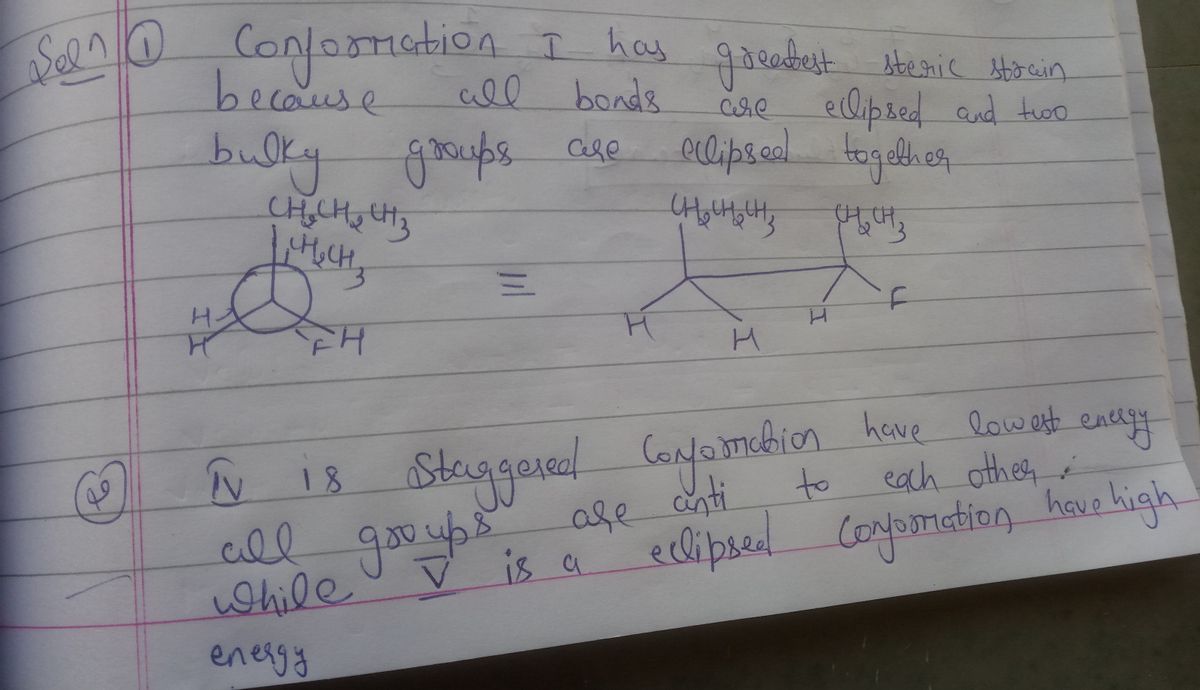 Soln ① Conformation I has greatest steric strain
because all bonds are eclipsed and two
bulky groups are eclipsed together
CH₂CH₂CH₃ CH₂CH₂CH₃ CH₂CH₃
CH₂CH₃
≡
H H H F
H F H H
② IV is staggered conformation have lowest energy
all groups are anti to each other.
while V is a eclipsed conformation have high
energy